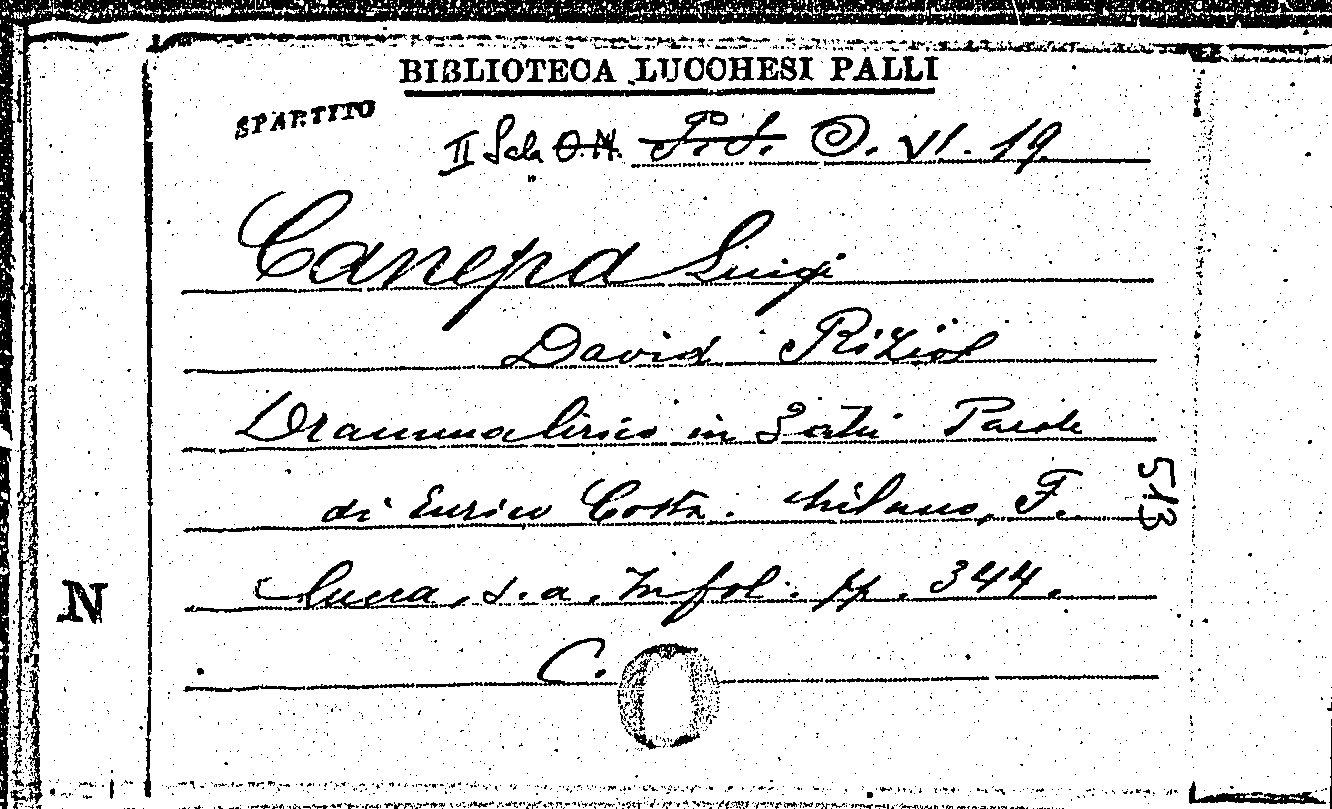 BIBLIOTECA LUCCHESI PALLI
SPARTITO
II Sala O. VI. 19
Canepa Luigi
David Rizio
Dramma lirico in 3 atti Parole
di Enrico Costa. Milano, F.
Lucca, s. a. In fol. pp. 344.
C.
513
N